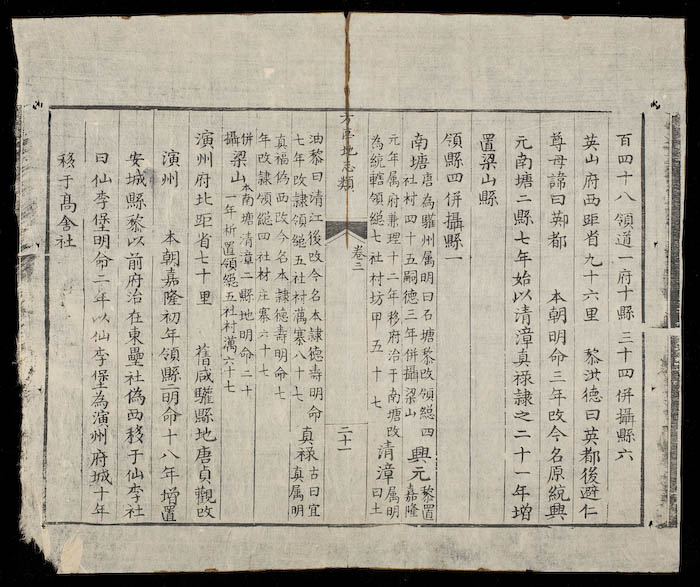 百四十八領道一府十縣三十四併攝縣六
英山府西距省九十六里 黎洪德曰英都後避仁
尊母諱曰郊都 本朝明命三年改今名原統興
元南塘二縣七年始以清漳真祿隸之二十一年增
置梁山縣
領縣四併攝縣一
南塘唐為驩州属明曰石塘黎改領總四
社村四十五嗣德三年併攝梁山
興元黎置
嘉隆
元年属府兼理十二年移府治于南塘改
為統轄領總七社村坊甲五十七
清漳属明
曰土
方輿地志類
卷三
二十一
油黎曰清江後改今名本隸德壽明命
七年改隸領總五社村萬寨八十七
真祿古曰宜
真属明
真福偽西改今名本隸德壽明命七
年改隸領總四社村庄寨六十七
併攝
梁山本南塘清漳二縣地明命二十
一年析置領總五社村萬六十七
演州府北距省七十里 舊咸驩縣地唐貞觀改
演州 本朝嘉隆初年領縣二明命十八年增置
安城縣黎以前府治在東壘社偽西移于仙李社
曰仙李堡明命二年以仙李堡為演州府城十年
移于髙舍社